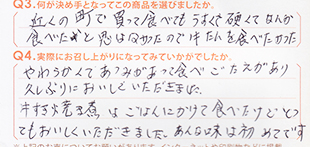 Q3.何が決め手となってこの商品を選びましたか。
近くの町で買って食べてもうすくて硬くてなんか
食べたなと思はなかったので牛たんを食べたかった
Q4.実際にお召し上がりになってみていかがでしたか。
やわらかくてあつみがあって食べごたえがあり
久しぶりにおいしくいただきました。
牛すき焼き煮はごはんにかけて食べたけどとっ
てもおいしくいただきました。あんな味は初めてです